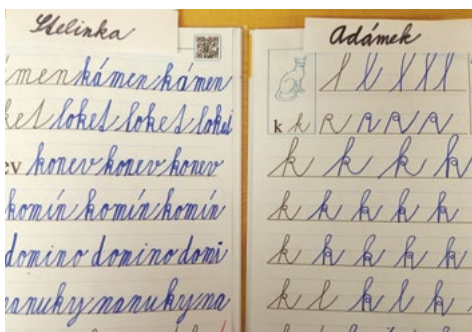 Stelinka
men kámen kámen
ket loket loket loket
ev konev konev konev
komín komín komín
domino domino domi
nanuky nanuky na
Adámek
l l l l l
k k
k k k k
k k k k k
k k k k k
k l k l k